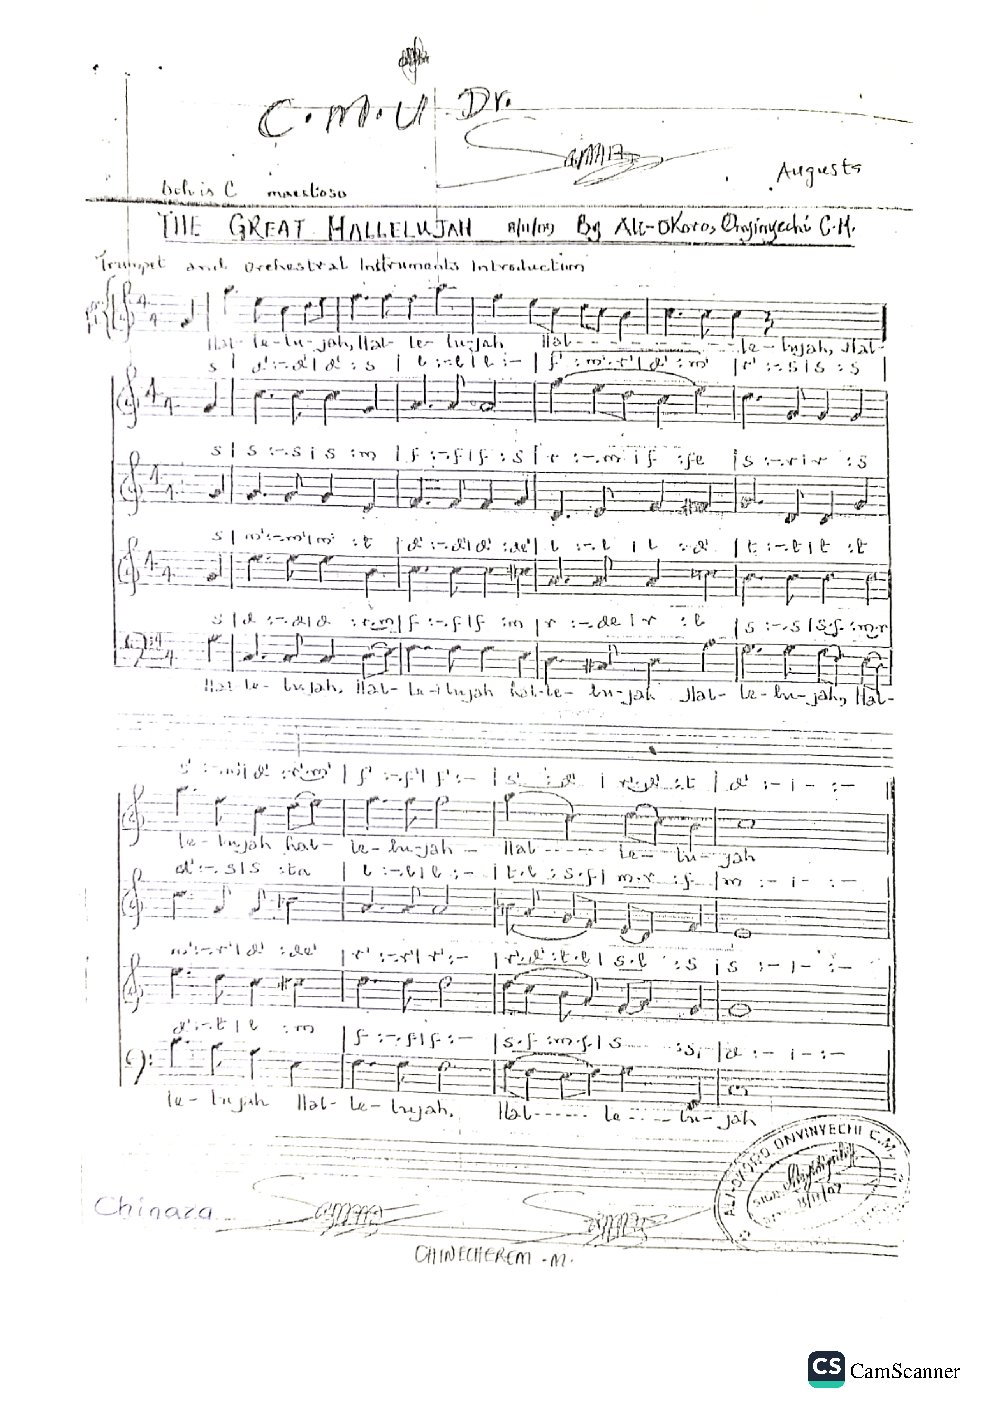 C.M.U Dr.
Augusta
Doh is C maestioso
THE GREAT HALLELUJAH 8/11/09 By Ali-Okoro, Onyinyechi C.M.
Trumpet and Orchestral Instruments Introduction
Hal- le- lu- jah, Hal- le- lu-jah Hal- - - - - - - - - - le- lujah, Hal-
s | d' :-.d' | d' : s | l :-.l | l :- | f' : m'.r' | d' : m' | r' :-.s | s : s |
s | s :-.s | s : m | f :-.f | f : s | r :-.m | f : fe | s :-.r | r : s
s | m' :-.m' | m' : t | d' :-.d' | d' : de' | l :-.l | l :-d' | t :-.t | t : t
s | d :-.d | d : r.m | f :-.f | f : m | r :-.de | r : l | s :-.s | s.f : m.r
Hal- le- lujah, Hal- le-lujah hal-le- lu-jah Hal- le- lu-jah, Hal-
s' :-.m' | d' : r'.m' | f' :-.f' | f' :- | s' : d' | r'.d' : t | d' :- | - :-
le- lujah hal- le- lu-jah - Hal- - - - - - le- lu- jah
d' :-.s | s : ta | l :-.l | l :- | t.l : s.f | m.r : f | m :- | - :-
m' :-.r' | d' : de' | r' :-.r' | r' :- | r'.d' : t.l | s.l : s | s :- | - :-
d' :-.t | l : m | f :-.f | f :- | s.f : m.f | s : s, | d :- | - :-
le- lujah Hal- le- lujah, Hal- - - - - - le- - - - lu- jah
ALI-OKORO ONYINYECHI C.M.
SIGN
DATE 8/11/09
Chinaza
CHINECHEREM .M.
CS CamScanner